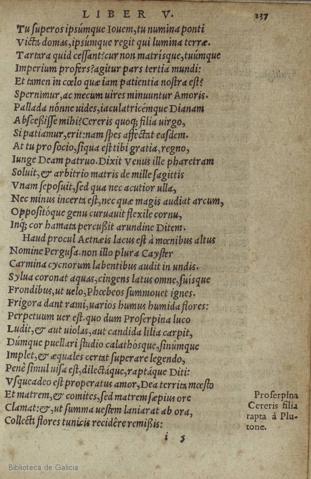 LIBER V. 137
Tu superos ipsúmque Iouem, tu numina ponti
Victa domas, ipsúmque regit qui lumina terræ.
Tartara quid cessant? cur non matrisque, tuúmque
Imperium profers? agitur pars tertia mundi:
Et tamen in cœlo quæ iam patientia nostra est?
Spernimur, ac mecum vires minuuntur Amoris.
Pallada nónne uides, iaculatricémque Dianam
Abscessisse mihi? Cereris quoq; filia uirgo,
Si patiamur, erit: nam spes affectat easdem.
At tu pro socio, siqua est tibi gratia, regno,
Iunge Deam patruo. Dixit Venus ille pharetram
Soluit, & arbitrio matris de mille sagittis
Vnam seposuit, sed qua nec acutior ulla,
Nec minus incerta est, nec quæ magis audiat arcum,
Oppositóque genu curuauit flexile cornu,
Inq; cor hamata percußit arundine Ditem.
Haud procul Aetnæis lacus est à mœnibus altus
Nomine Pergusa. non illo plura Cayster
Carmina cycnorum labentibus audit in undis.
Sylua coronat aquas, cingens latus omne, suisque
Frondibus, ut uelo, Phœbeos summouet ignes.
Frigora dant rami, uarios humus humida flores:
Perpetuum uer est. quo dum Proserpina luco
Ludit, & aut uiolas, aut candida lilia carpit,
Dúmque puellari studio calathósque, sinúmque
Implet, & æquales certat superare legendo,
Penè simul uisa est, dilectáque, raptáque Diti:
Vsqueadeo est properatus amor. Dea territa mœsto
Et matrem, & comites, sed matrem sæpius ore
Clamat: &, ut summa uestem laniarat ab ora,
Collecti flores tunicis recidêre remißis:
Proserpina
Cereris filia
rapta á Plu-
tone.
i 5
Biblioteca de Galicia